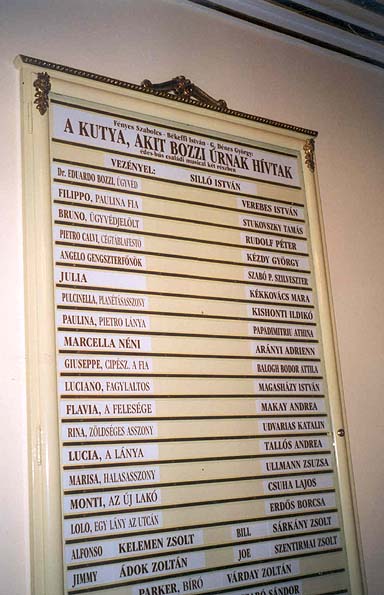 Fényes Szabolcs - Békeffi István - G. Dénes György:
A KUTYA, AKIT BOZZI ÚRNAK HÍVTAK
édes bús családi musical két részben
VEZÉNYEL: SILLÓ ISTVÁN
Dr. EDUARDO BOZZI, ÜGYVÉD VEREBES ISTVÁN
FILIPPO, PAULINA FIA STUKOVSZKY TAMÁS
BRUNO, ÜGYVÉDJELÖLT RUDOLF PÉTER
PIETRO CALVI, CÉGTÁBLAFESTŐ KÉZDY GYÖRGY
ANGELO GENGSZTERFŐNÖK SZABÓ P. SZILVESZTER
JULIA KÉKKOVÁCS MARA
PULCINELLA, PLANÉTÁSASSZONY KISHONTI ILDIKÓ
PAULINA, PIETRO LÁNYA PAPADIMITRIU ATHINA
MARCELLA NÉNI ARÁNYI ADRIENN
GIUSEPPE, CIPÉSZ, A FIA BALOGH BODOR ATTILA
LUCIANO, FAGYLALTOS MAGASHÁZY ISTVÁN
FLAVIA, A FELESÉGE MAKAY ANDREA
RINA, ZÖLDSÉGES ASSZONY UDVARIAS KATALIN
LUCIA, A LÁNYA TALLÓS ANDREA
MARISA, HALASASSZONY ULLMANN ZSUZSA
MONTI, AZ ÚJ LAKÓ CSUHA LAJOS
LOLO, EGY LÁNY AZ UTCÁN ERDŐS BORCSA
ALFONSO KELEMEN ZSOLT BILL SÁRKÁNY ZSOLT
JIMMY ÁDOK ZOLTÁN JOE SZENTIRMAI ZSOLT
PARKER, BÍRÓ VÁRDAY ZOLTÁN
SÁNDOR